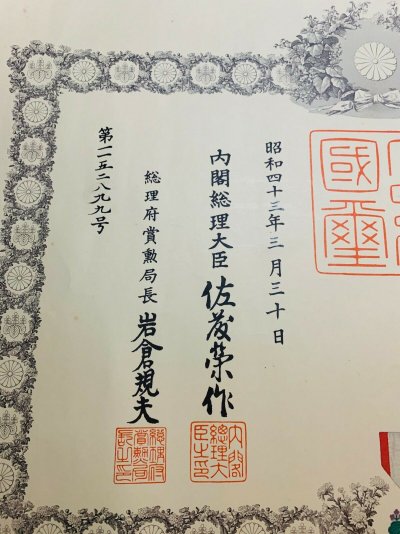 昭和四十三年三月三十日
内閣総理大臣 佐藤榮作
総理府賞勲局長 岩倉規夫
第一五二八九九号
國璽
内閣總理大臣之印